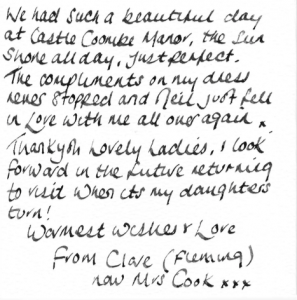 We had such a beautiful day
at Castle Coombe Manor, the Sun
Shone all day, just perfect.
The compliments on my dress
never stopped and Neil just fell
in Love with me all over again x
Thankyou Lovely Ladies, i look
forward in the future returning
to visit when its my daughters
turn!
Warmest Wishes & Love
From Clare (Fleming)
now Mrs Cook xxx